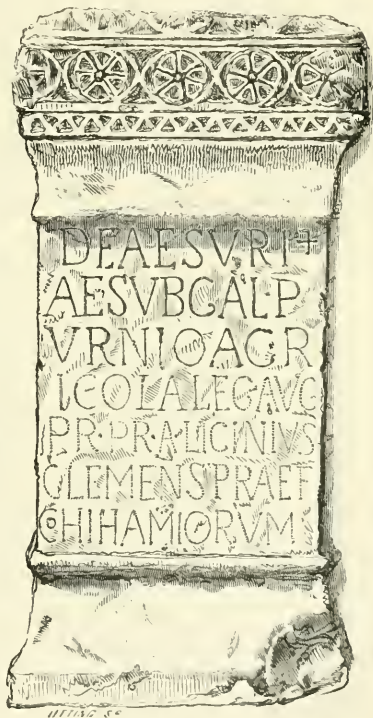 DEAESVRI
AESVBCALP
VRNIOAGR
ICOLALEGAVG
PR·PR·A·LICINIVS
CLEMENSPRAEF
COHIHAMIORVM
UTTING SC